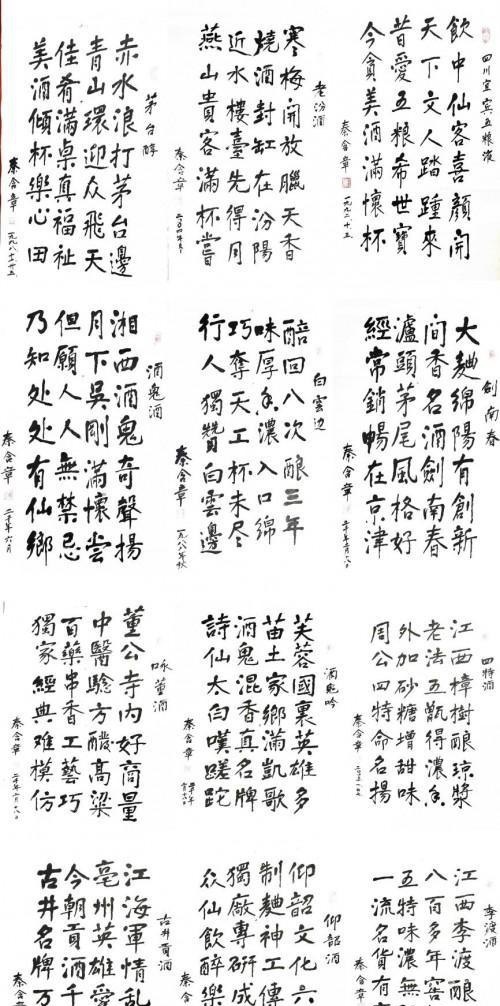 四川宜宾五粮液
飲中仙客喜顏開
天下文人踏踵來
昔愛五粮希世寶
今貪美酒滿懷杯
秦含章
老汾酒
寒梅開放臘天香
燒酒封缸在汾陽
近水樓臺先得月
燕山貴客滿杯嘗
秦含章 二〇〇四年冬
茅台醇
赤水浪打茅台邊
青山環迎众飛天
佳肴滿桌真福祉
美酒傾杯樂心田
秦含章 一九九八.十.十五
劍南春
大麯綿陽有創新
間香名酒劍南春
瀘頭茅尾風格好
經常銷暢在京津
秦含章
白雲边
醅回八次酿三年
味厚香濃入口綿
巧奪天工杯未尽
行人獨贊白雲邊
秦含章 一九八八年秋
酒鬼酒
湘西酒鬼奇聲揚
月下吳剛滿懷尝
但願人人無禁忌
乃知处处有仙鄉
秦含章 二〇一〇年六月
四特酒
江西樟樹酿琼漿
老法五甑得濃香
外加砂糖增甜味
周公四特命名揚
秦含章
酒鬼吟
芙蓉國裏英雄多
苗土家鄉滿凱歌
酒鬼混香真名牌
詩仙太白嘆蹉跎
秦含章
咏董酒
董公寺内好商量
中醫驗方酸高粱
百藥串香工藝巧
獨家經典难模仿
秦含章
李渡酒
江西李渡酿
八百多年窖
五特味濃無
一流名貨有
秦含
仰韶酒
仰韶文化六
制麯神工傳
獨廠專研成
众仙飲醉樂
秦含
古井貢酒
江海軍情乱
亳州英雄愛
今朝貢酒千
古井名牌万
秦含